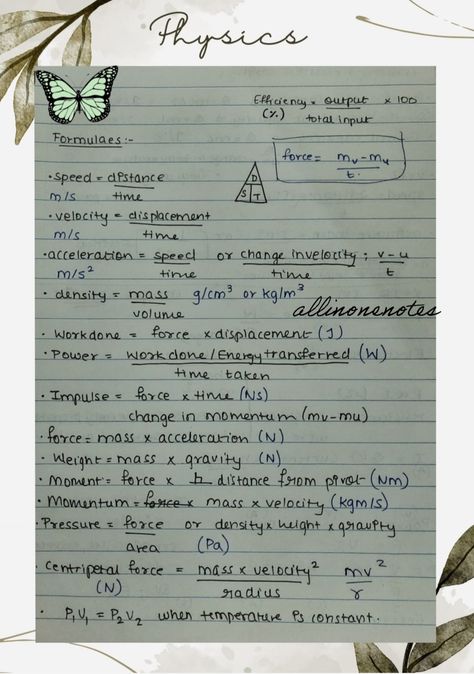 Physics
Efficiency = output × 100
(%) total input
Formulaes:-
force = mv - mu
t.
• speed = distance
m/s time
D
S T
• velocity = displacement
m/s time
• acceleration = speed or change in velocity ; v-u
m/s² time time t
• density = mass g/cm³ or kg/m³
volume
allinonenotes
• Workdone = force × displacement (J)
• Power = work done / Energy transferred (W)
time taken
• Impulse = force × time (Ns)
change in momentum (mv-mu)
• force = mass × acceleration (N)
• Weight = mass × gravity (N)
• Moment = force × h distance from pivot (Nm)
• Momentum = force × mass × velocity (kgm/s)
• Pressure = force or density × height × gravity
area (Pa)
• Centripetal force = mass × velocity² mv²
(N) radius r
• P₁V₁ = P₂V₂ when temperature is constant.